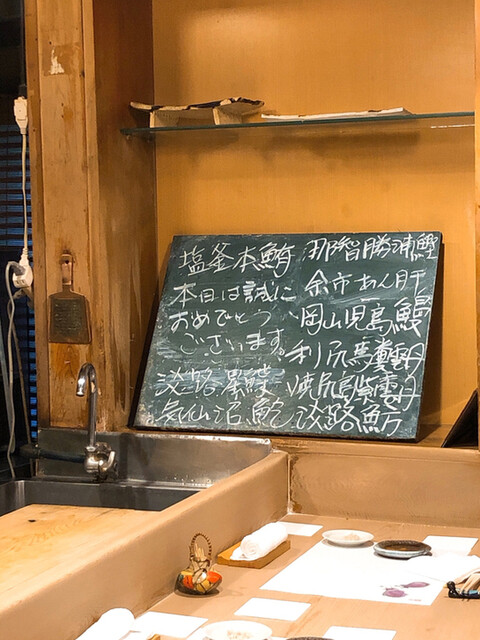 塩釜本鮪
本日は誠に
おめでとう
ございます。
淡路黒鰒
気仙沼鮀
那智勝浦鰹
余市あん肝
岡山児島鰻
利尻馬糞雲丹
焼尻島紫雲丹
淡路魴